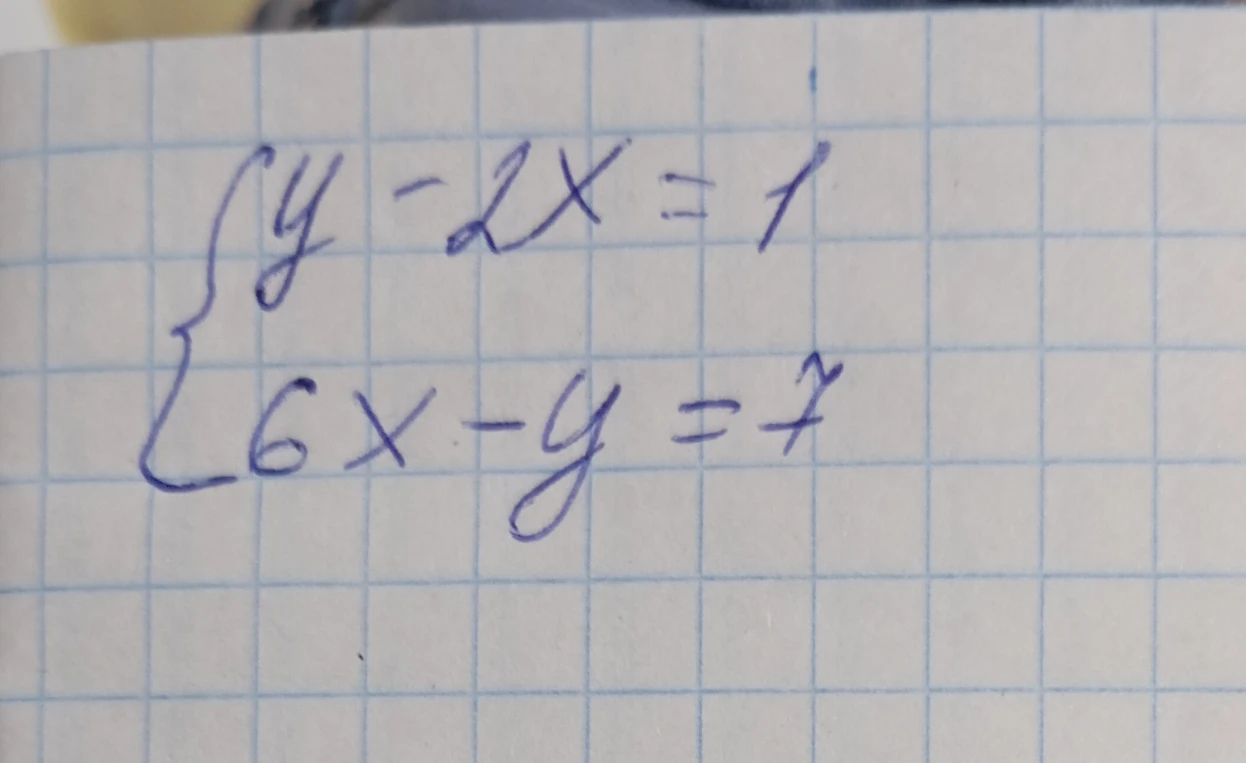 y - 2x = 1
6x - y = 7